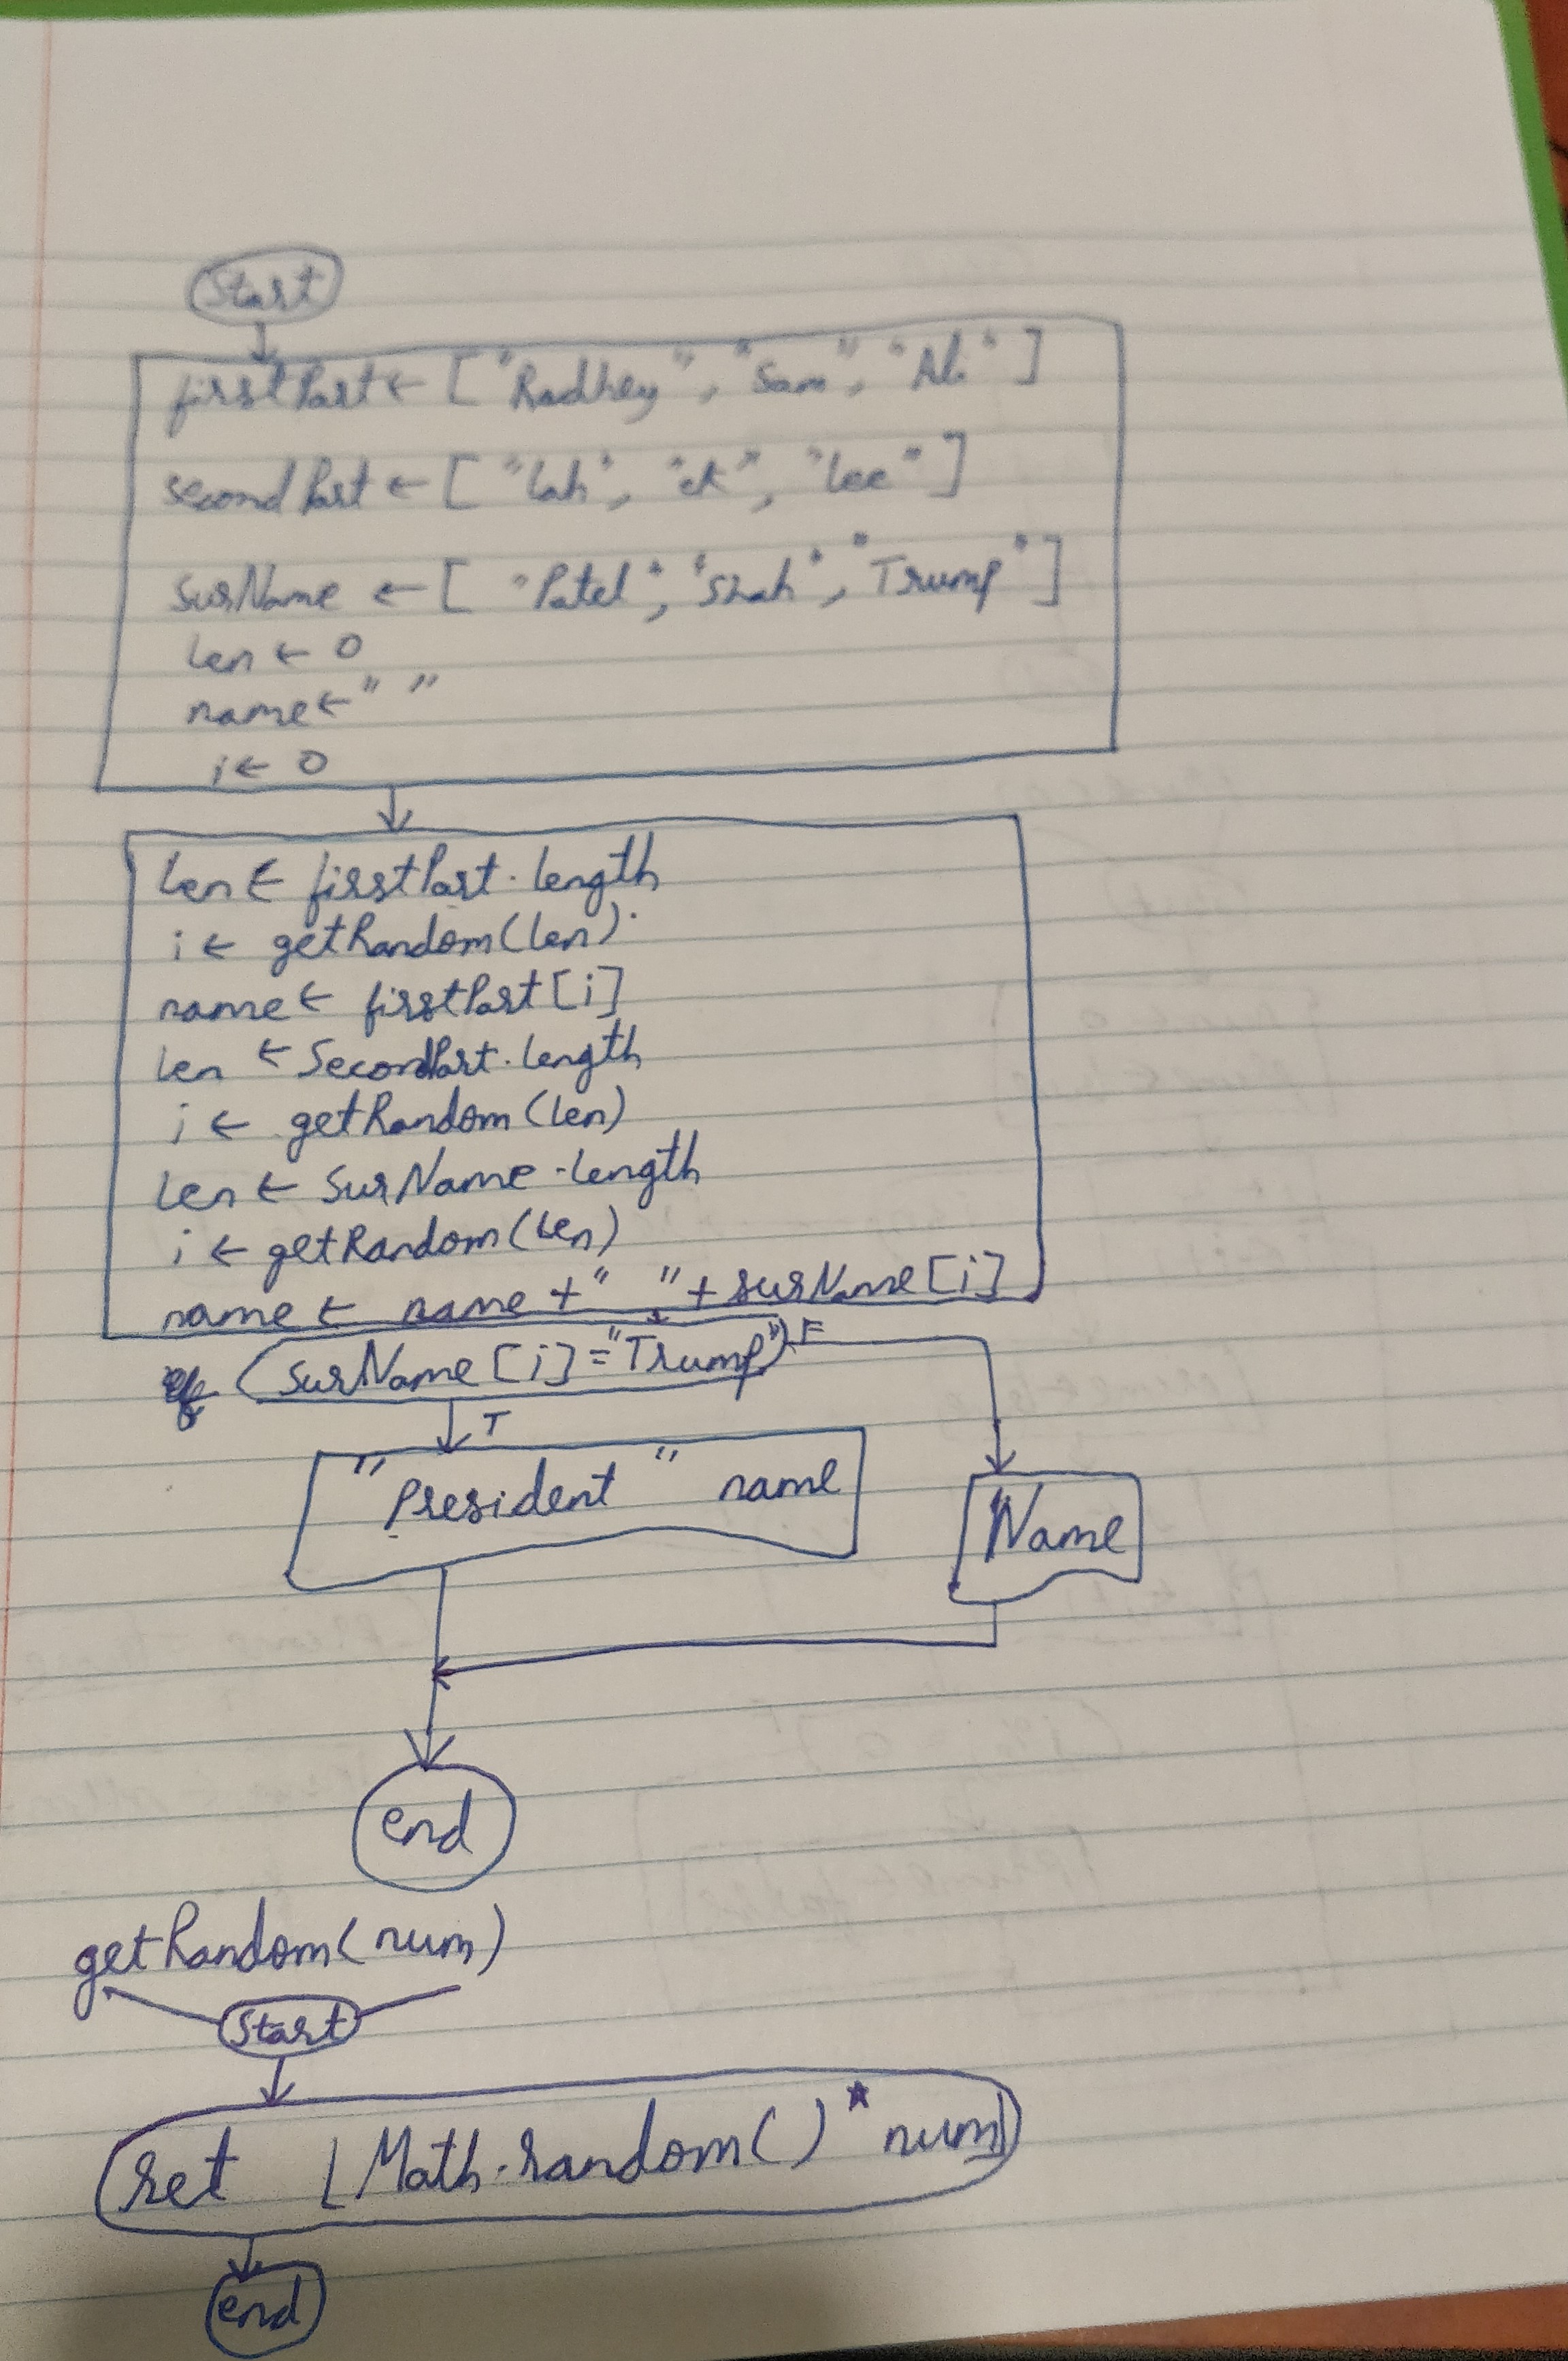 Start
firstPart ← ["Radhey", "Sam", "Ali"]
secondPart ← ["lah", "ck", "Lee"]
surName ← ["Patel", "Shah", "Trump"]
len ← 0
name ← " "
i ← 0
len ← firstPart.length
i ← getRandom(len)
name ← firstPart[i]
len ← SecondPart.length
i ← getRandom(len)
len ← surName.length
i ← getRandom(len)
name ← name + " " + surName[i]
(surName[i]="Trump") F
T
"President" name
Name
end
getRandom(num)
Start
ret ⌊Math.random() * num⌋
end